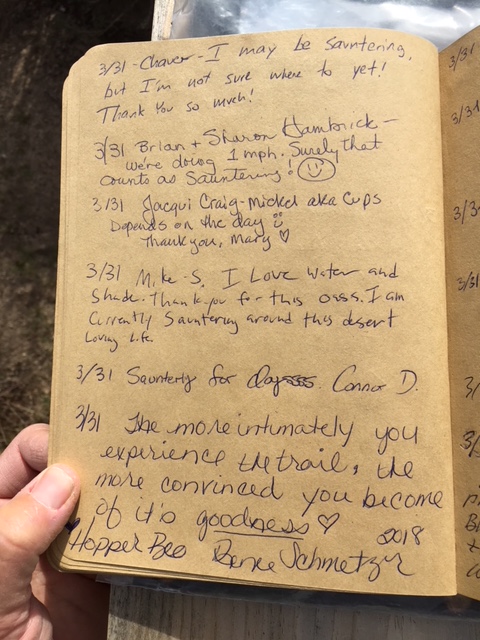 3/31 - Chaver - I may be sauntering,
but I'm not sure where to yet!
Thank you so much!
3/31 Brian + Sharon Hambrick -
we're doing 1 mph. Surely that
counts as Sauntering!
3/31 Jacqui Craig-Mickel aka Cups
Depends on the day
Thank you, Mary ♡
3/31 Mike-S. I Love water and
Shade. Thank-you for this oasis. I am
Currently Sauntering around this desert
Loving Life.
3/31 Saunterly for daysssss. Connor D.
3/31 The more intimately you
experience the trail, the
more convinced you become
of it's goodness ♡ 2018
Hopper Bee Renee Schmetzer
3/31
3/31
3/3
3/31
3/
3/